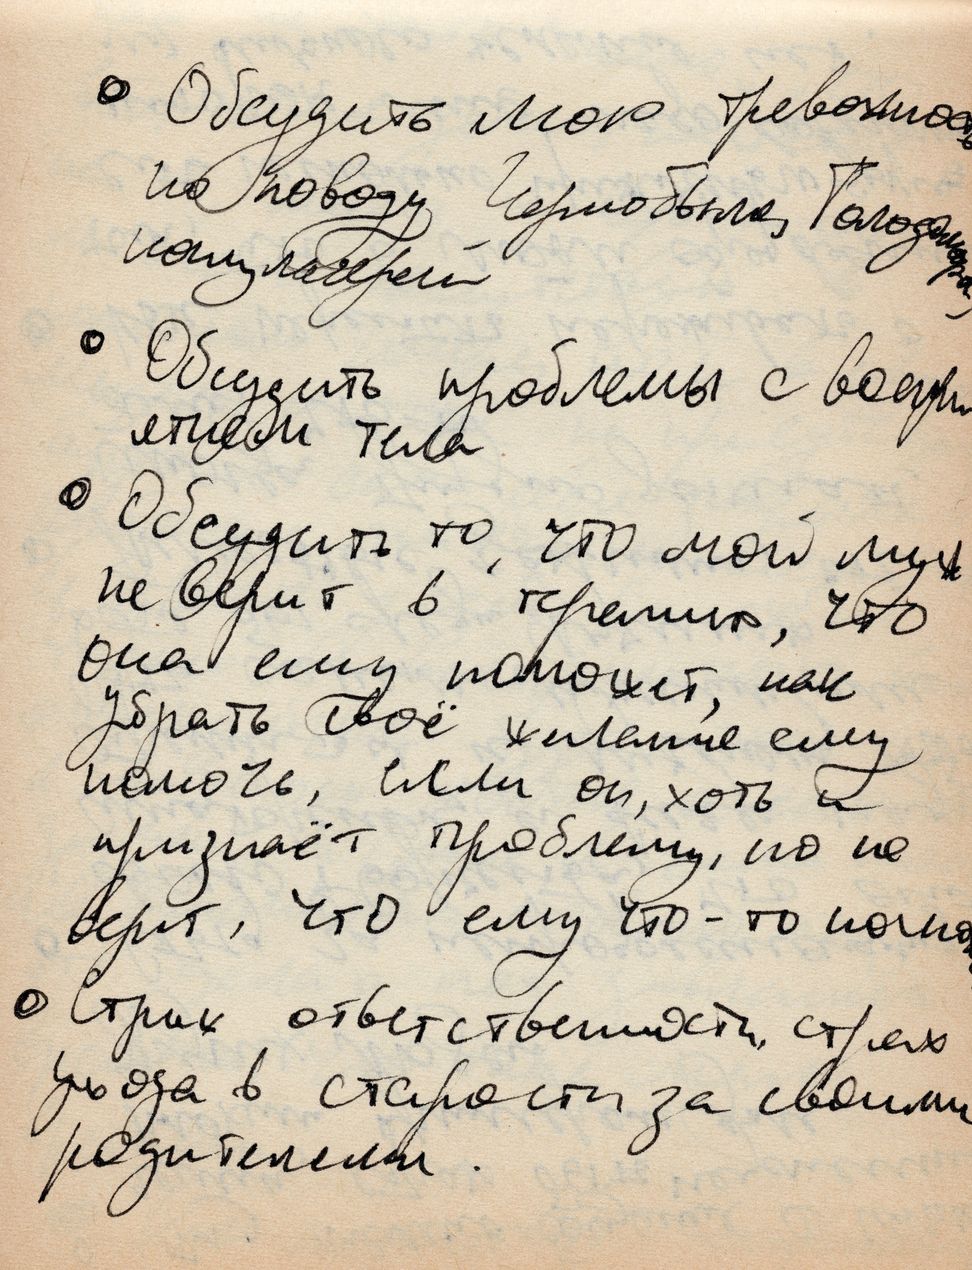 Обсудить мою тревожность
по поводу Чернобыля, Голодомора,
концлагерей
Обсудить проблемы с воспри
ятием тела
Обсудить то, что мой муж
не верит в терапию, что
она ему поможет, как
убрать своё желание ему
помочь, если он, хоть и
признаёт проблему, но не
верит, что ему что-то поможет
Страх ответственности, страх
ухода в старости за своими
родителями.